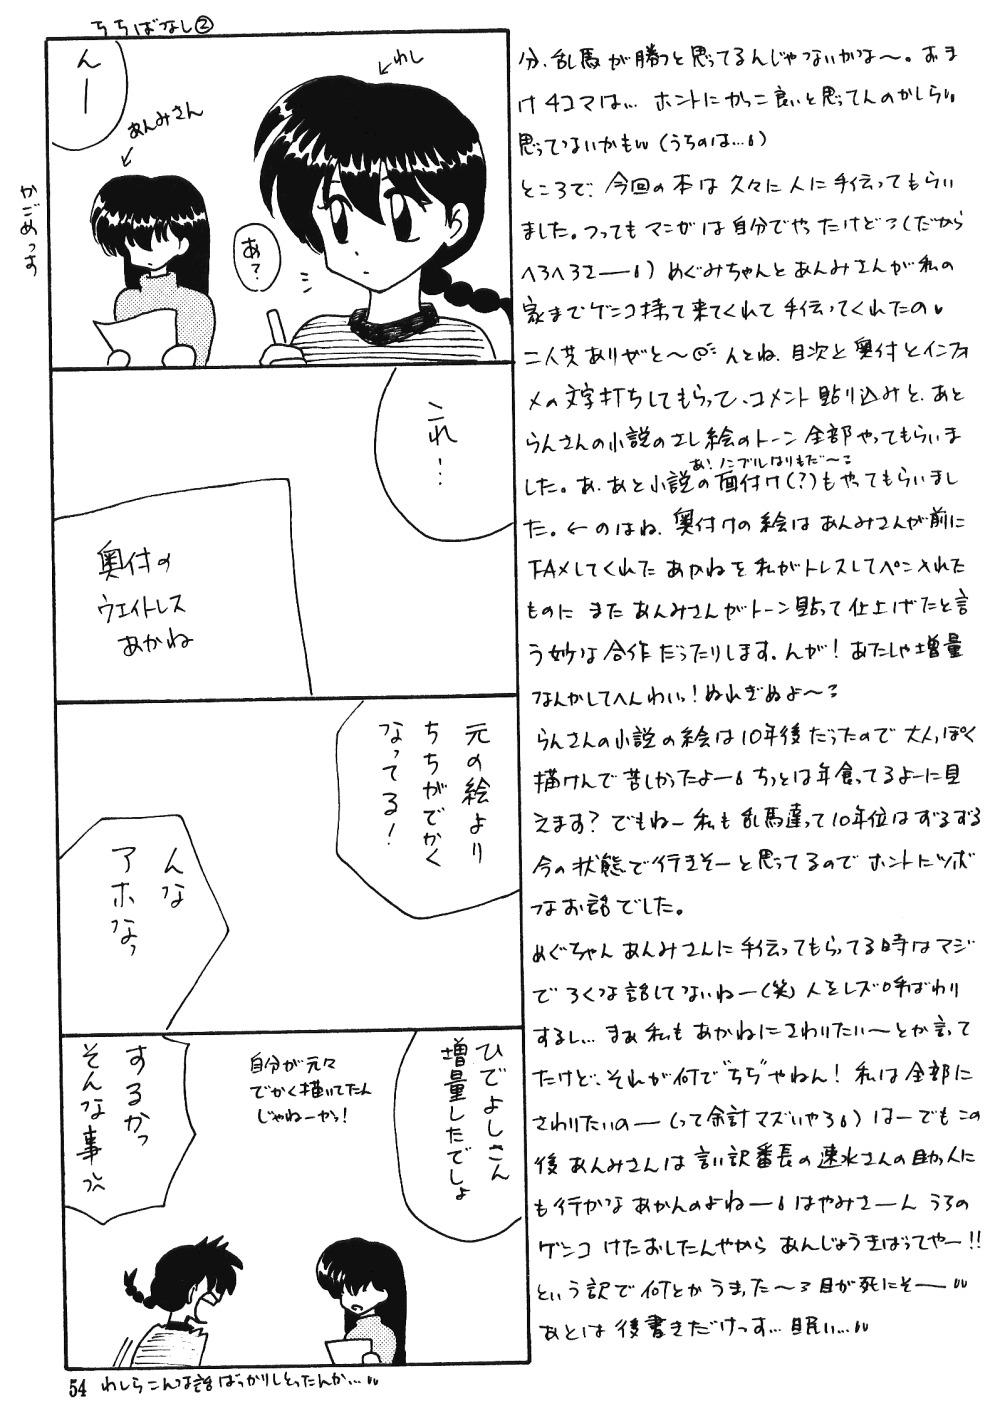 ちちばなし②
んー
あんみさん
わし
かごめっす
あ?
これ…!
奥付の
ウエイトレス
あかね
元の絵より
ちちがでかく
なってる!
んな
アホなっ
ひでよしさん
増量したでしょ
自分が元々
でかく描いてたん
じゃねーかっ!
するかっ
そんな事っ
54 わしらこんな話ばっかりしとったんか…
分、乱馬が勝つと思ってるんじゃないかな〜。おま
け4コマは… ホントにかっこ良いと思ってんのかしら
思ってないかも(うちのは…)
ところで、今回の本は久々に人に手伝ってもらい
ました。つってもマンガは自分でやったけど(だから
へろへろさー)めぐみちゃんとあんみさんが私の
家までゲンコ持って来てくれて手伝ってくれたの
二人共ありがと〜 んとね、目次と奥付とインフォ
メの文字打ちしてもらって、コメント貼り込みと、あと
らんさんの小説のさし絵のトーン全部やってもらいま
あ!ノンブルはりもだ〜
した。あ、あと小説の面付け(?)もやってもらいまし
た。←のはね、奥付けの絵はあんみさんが前に
FAXしてくれたあかねを私がトレスしてペン入れた
ものにまたあんみさんがトーン貼って仕上げたと言
う妙な合作だったりします。んが!あたしゃ増量
なんかしてへんわいっ!ぬれぎぬよ〜
らんさんの小説の絵は10年後だったので大人っぽく
描けんで苦しかったよー ちっとは年食ってるよーに見
えます?でもねー私も乱馬達って10年位はずるずる
今の状態で行きそーと思ってるのでホントにツボ
なお話でした。
めぐちゃんあんみさんに手伝ってもらってる時はマジ
でろくな話してないねー(笑)人をレズ呼ばわり
するし…まぁ私もあかねにさわりたい〜とか言って
たけど、それが何で"ちち"やねん!私は全部に
さわりたいのー(って余計マズいやろ)はーでもこの
後あんみさんは言い訳番長の速水さんの助っ人に
も行かなあかんのよねー はやみさーん うちの
ゲンコけたおしたんやから あんじょうきばってやー!!
という訳で何とかうまった〜 目が死にそー
あとは後書きだけっす…眠い…